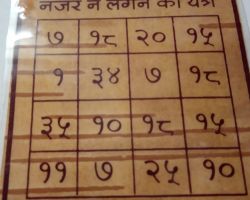 नजर न लगने का यंत्र
७ १८ २० १५
१ ३४ ७ १८
३५ १० १८ १५
११ ७ २५ १०